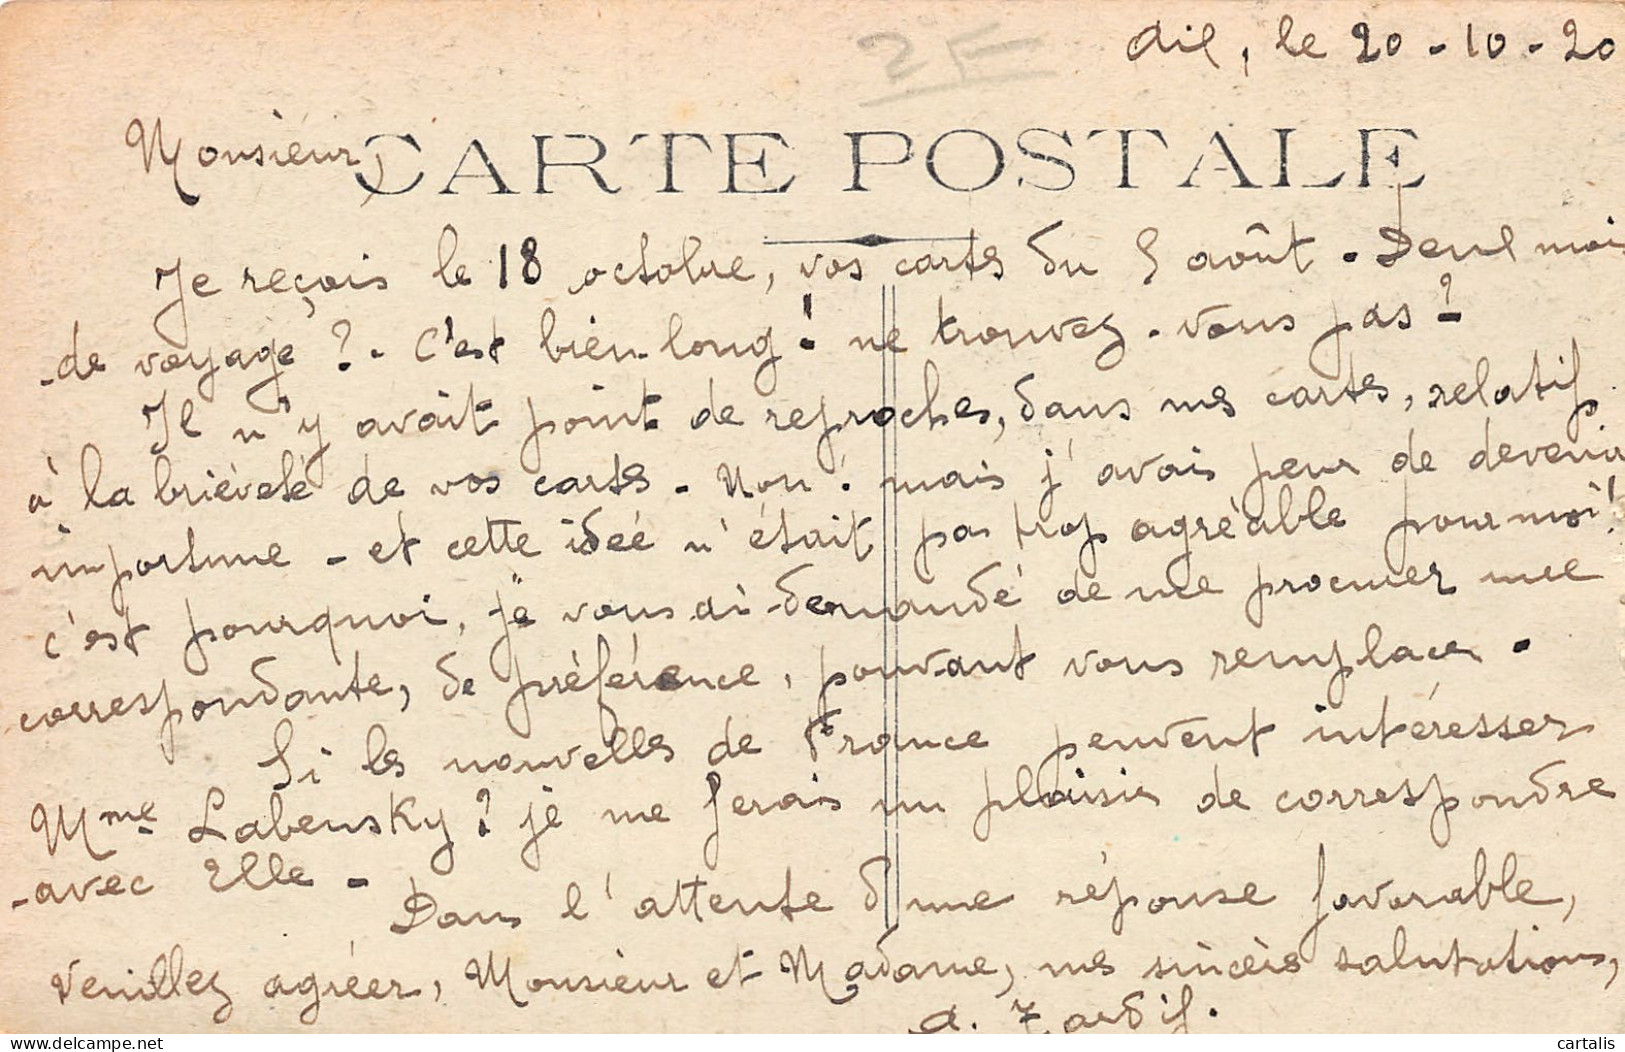 Ail, le 20-10-20
2F
Monsieur,
CARTE POSTALE
Je reçois le 18 octobre, vos cartes du 5 août. Deux mois
-de voyage ?. C'est bien long ! ne trouvez-vous pas ?
Il n'y avait point de reproches, dans mes cartes, relatif
à la brièveté de vos cartes. Non ! mais j'avais peur de devenir
importune - et cette idée n'était pas trop agréable pour moi !
c'est pourquoi, je vous ai demandé de me procurer une
correspondante, de préférence, pouvant vous remplacer.
Si les nouvelles de France peuvent intéresser
Mme Labensky ? je me ferais un plaisir de correspondre
-avec Elle -
Dans l'attente d'une réponse favorable,
Veuillez agréer, Monsieur et Madame, mes sincères salutations,
A. Tardif.
cartalis
delcampe.net